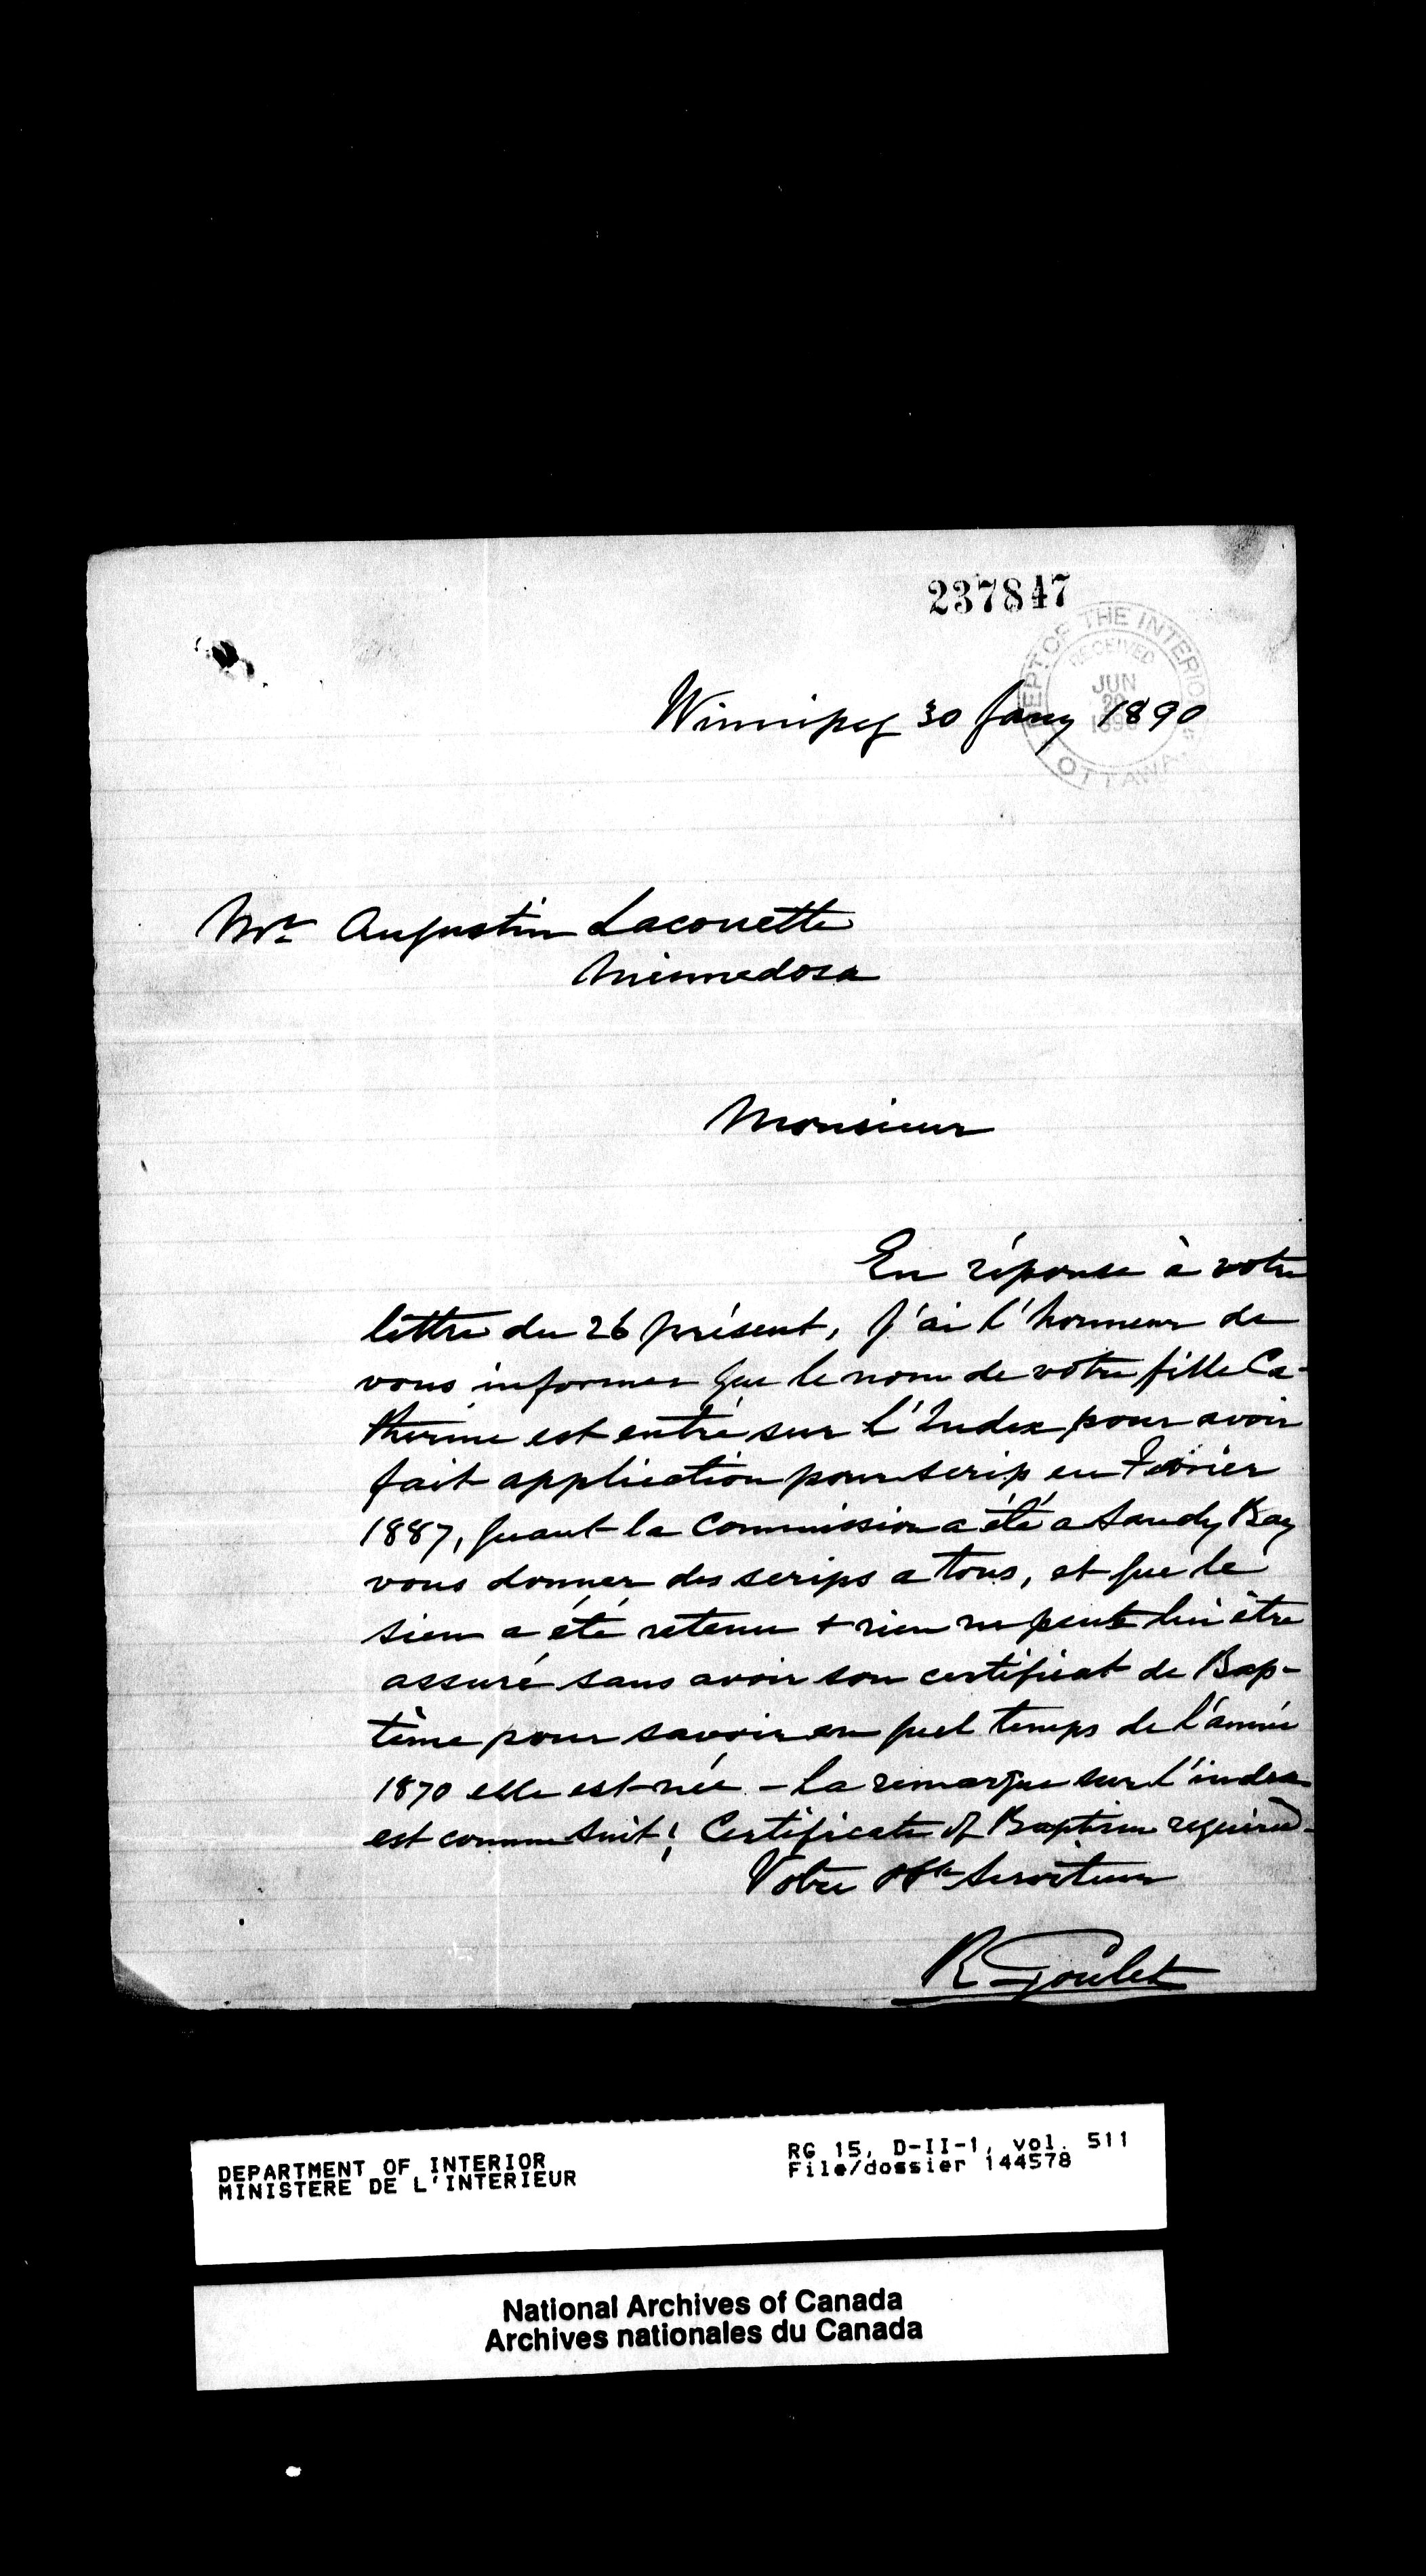 237847
DEPT. OF THE INTERIOR
RECEIVED
JUN
20
1890
OTTAWA
Winnipeg 30 Jany 1890
Mr Augustin Lacouette
Minnedosa
Monsieur
En réponse à votre
lettre du 26 présent, j'ai l'honneur de
vous informer que le nom de votre fille Ca-
therine est entré sur l'Index pour avoir
fait application pour scrip en Fevrier
1887, quant la Commission a été a Sandy Bay
vous donner des scrips a tous, et que le
sien a été retenu + rien ne peut lui être
assuré sans avoir son certificat de Bap-
tême pour savoir en quel temps de l'année
1870 elle est née - La remarque sur l'index
est comme suit; Certificate of Baptism required -
Votre Obt Serviteur
R Goulet
DEPARTMENT OF INTERIOR
MINISTERE DE L'INTERIEUR
RG 15, D-II-1, vol. 511
File/dossier 144578
National Archives of Canada
Archives nationales du Canada